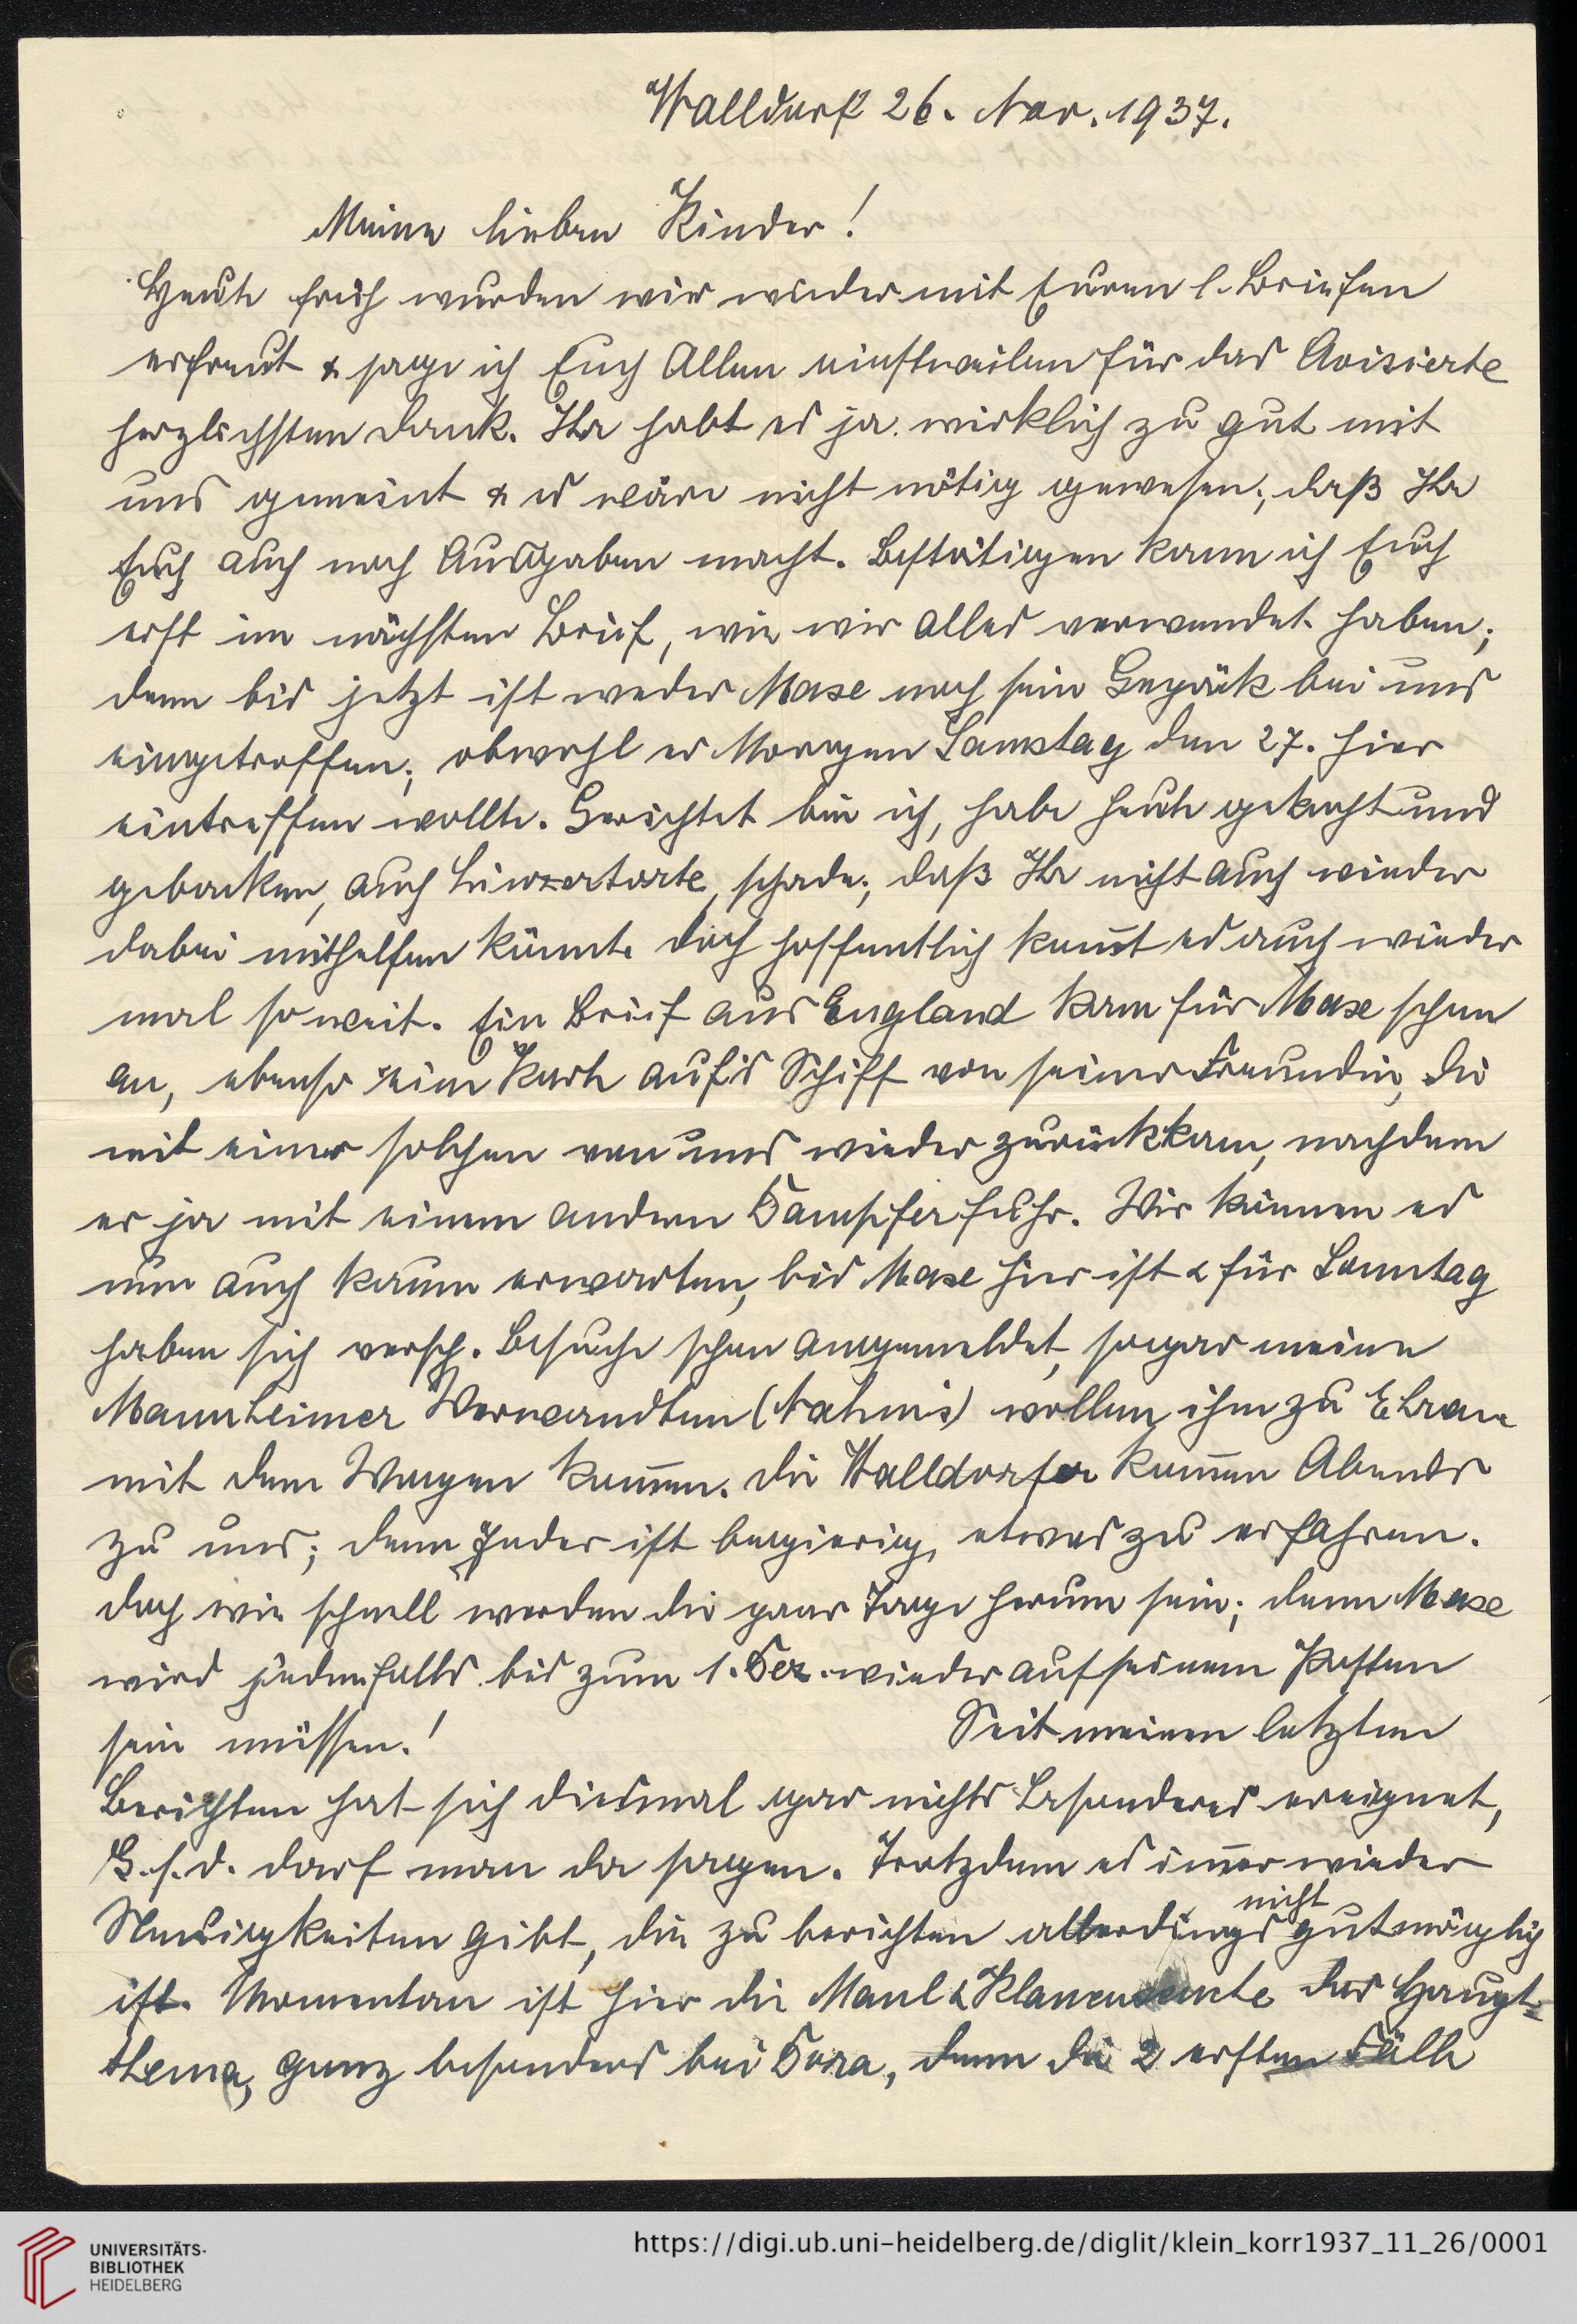 Walldorf 26. Nov. 1937.
Meine lieben Kinder!
Heute früh wurden wir wieder mit Euren l. Briefen
erfreut & sage ich Euch Allen einstweilen für das Avisierte
herzlichsten Dank. Ihr habt es ja wirklich zu gut mit
uns gemeint & es wäre nicht nötig gewesen, daß Ihr
Euch auch noch Ausgaben macht. Bestätigen kann ich Euch
erst im nächsten Brief, wie wir alles verwendet haben;
denn bis jetzt ist weder Max noch sein Gepäck bei uns
eingetroffen; obwohl er Morgen Samstag den 27. hier
eintreffen wollte. Gerichtet bin ich, habe heute gekocht und
gebacken, auch Linzertorte, schade, daß Ihr nicht auch wieder
dabei mithelfen könnt. Doch hoffentlich kom̅t es auch wieder
mal so weit. Ein Brief aus England kam für Max schon
an, ebenso eine Karte auf's Schiff von seiner Freundin, die
mit einer solchen von uns wieder zurückkam, nachdem
er ja mit einem andern Dampfer fuhr. Wir können es
nun auch kaum erwarten, bis Max hier ist & für Sonntag
haben sich versch. Besuche schon angemeldet, sogar meine
Mannheimer Verwandten (Nahms) wollen ihm zu Ehren
mit dem Wagen kom̅en. Die Walldorfer kom̅en Abends
zu uns; denn Jeder ist begierig, etwas zu erfahren.
Doch wie schnell werden die paar Tage herum sein; denn Max
wird jedenfalls bis zum 1. Dez. wieder auf seinem Posten
sein müssen! Seit meinen letzten
Berichten hat sich diesmal gar nichts Besonderes ereignet,
G. s. d. darf man da sagen. Trotzdem es im̅er wieder
Neuigkeiten gibt, die zu berichten allerdings nicht gut möglich
ist. Momentan ist hier die Maul & Klauenseuche das Haupt-
thema, ganz besonders bei Dora, denn die 2 ersten Fälle
UNIVERSITÄTS-
BIBLIOTHEK
HEIDELBERG
https://digi.ub.uni-heidelberg.de/diglit/klein_korr1937_11_26/0001